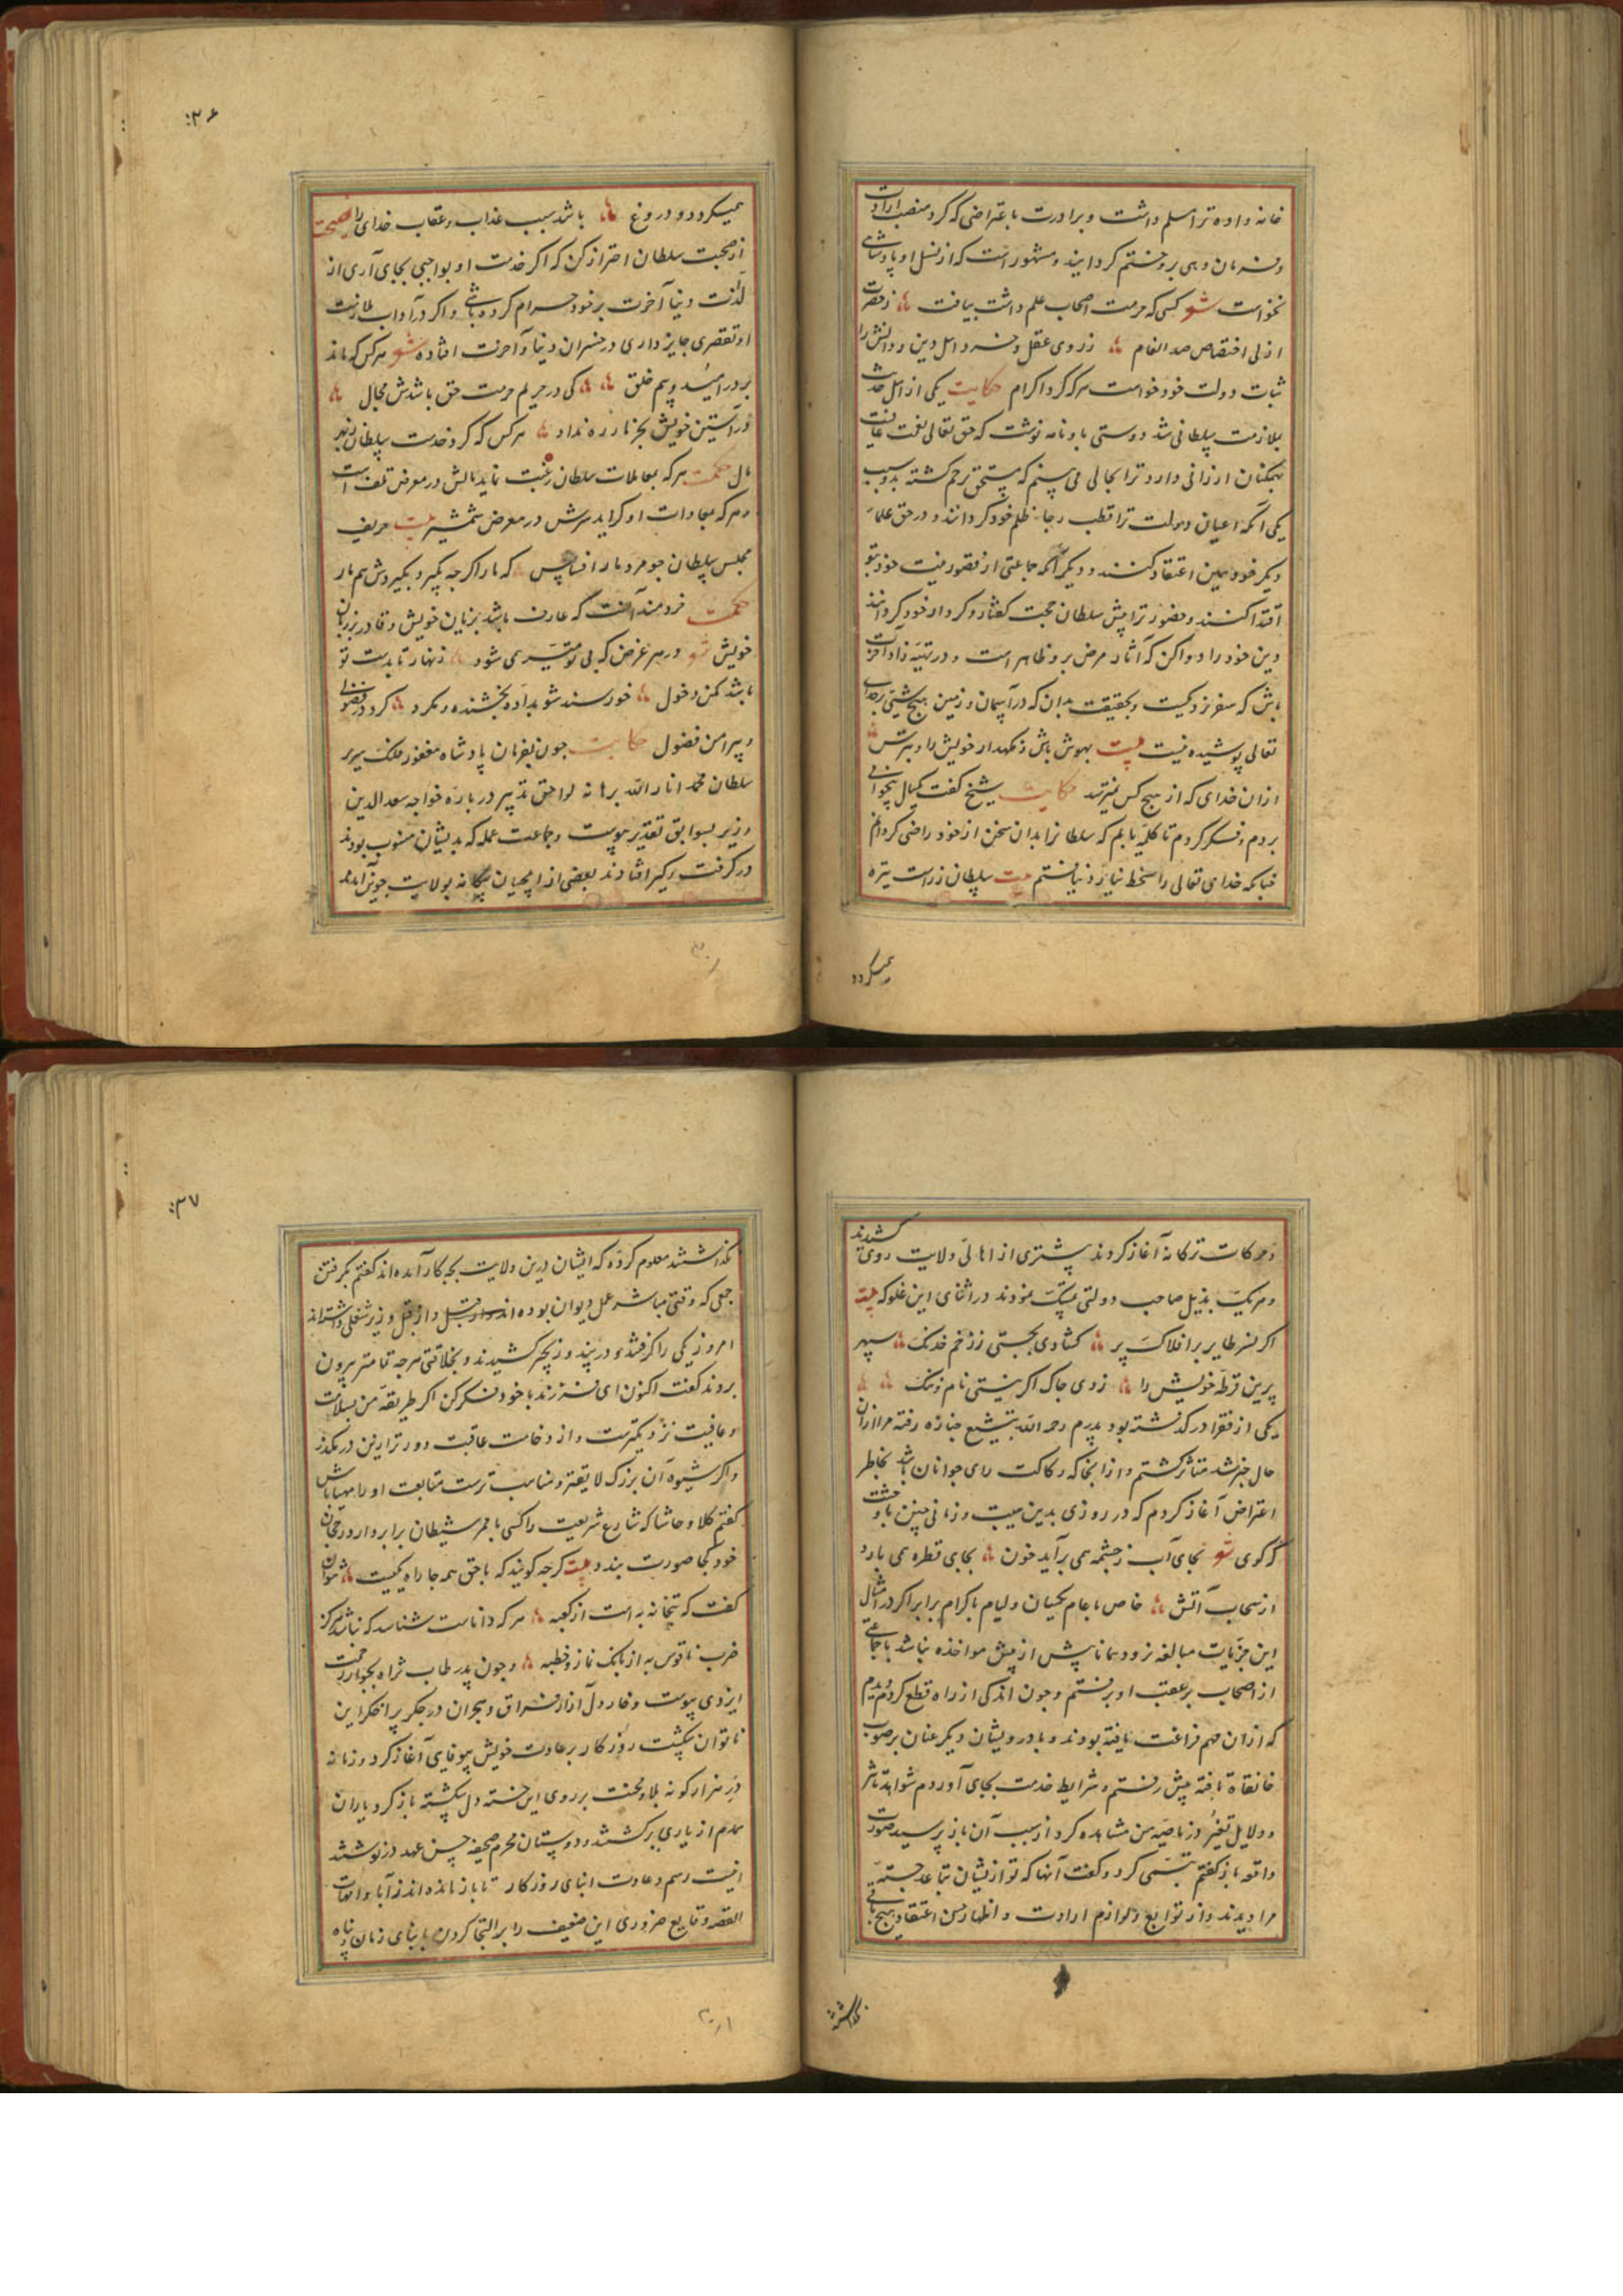 خانه واده ترا مسلم داشت و برادرت باعتراضی که کرد منصب ارادت
و فرمان دهی برو ختم کردانیند و مشهور است که از نسل او پادشاهی
نخواست شعر کسی که حرمت اصحاب علم داشت بیافت ز حضرت
ازلی اختصاص صد انعام ز روی عقل و خرد اهل دین و دانش را
ثبات دولت خود خواست هر که کرد اکرام حکایت یکی از اهل حدیث
بملازمت سلطانی شد دوستی باو نامه نوشت که حق تعالی نعمت عافیت
بهمکنان ارزانی دارد ترا بحالی می بینم که مستحق ترحم کشته بدو سبب
یکی آنکه اعیان دولت ترا قطب رحاء ظلم خود کردانند و در حق علماء
دیکر خود همین اعتقاد کنند و دیکر آنکه جماعتی از قصور نیت خود بتو
اقتدا کنند و حضور ترا پیش سلطان حجت کفتار و کردار خود کردانند
دین خود را دوا کن که آثار مرض برو ظاهر است و در تهیه زاد آخرت
باش که سفر نزدیکست و بحقیقت بدان که در آسمان و زمین هیچ شیئی بر خدای
تعالی پوشیده نیست بیت بهوش باش و نکهدار خویش را و بترس
ازان خدای که از هیچ کس نمیترسد حکایت شیخ گفت یکسال بیخوابی
بردم و فکر کردم تا کلمه یابم که سلطانرا بدان سخن از خود راضی کردانم
چنانکه خدای تعالی را سخط نیارد نیافتم بیت سلطان ز راست تیره
میکردد
۲۶
میکردد و دروغ باشد سبب عذاب و عقاب خدای را نصیحت
از صحبت سلطان احتراز کن که اکر خدمت او بواجبی بجای آری از
لذت دنیا آخرت بر خود حرام کرده باشی و اکر در آداب ملازمت
او تقصیری جایز داری در خسران دنیا و آخرت افتاده شعر هر کس که ماند
بر در امید و بیم خلق کی در حریم حرمت حق باشدش مجال
در آستین خویش بجز نار ره نداد هر کس که کرد خدمت سلطان
مال حکمت هر که بمعاملات سلطان رغبت نماید مالش در معرض تلف است
و هر که بمعادات او کراید سرش در معرض شمشیر بیت حریف
مجلس سلطان چو مرد مار افسای پس که مار اکرچه بکیرد بکیردش هم مار
حکمت خردمند آنست که عارف باشد بزیان خویش و قادر بر زبان
خویش شعر در هر غرض که بی تو میسر می شود زنهار تا بدست تو
باشد مکن دخول خورسند شو بداده بخشنده و مکرد کرد در فضولی
و پیرامن فضول حکایت چون بفرمان پادشاه مغفور ملک سریر
سلطان محمد انار الله برهانه لواحق تدبیر درباره خواجه سعدالدین
وزیر بسوابق تقدیر پیوست و جماعت عمله که بدیشان منسوب بودند
در کرفت و کیر افتادند بعضی از ایلچیان بیکانه بولایت جوین آمدند
و حرکات ترکانه آغاز کردند بیشتری از اهالی ولایت روی کشیدند
و هر یک بذیل صاحب دولتی تمسک نمودند در اثنای این غلو که بیت
اکر نسر طایر بر افلاک پر کشادی بجستی ز زخم خدنک سپهر
برین قرطه خویش را زدی چاک اکر نیستی نام و ننک
یکی از فقرا در کذشته بود پدرم رحمه الله بتشییع جنازه رفته مرا از آن
حال خبر شد متأثر کشتم و از آنجا که رکاکت رای جوانان باشد بخاطر
اعتراض آغاز کردم که در روزی بدین هیبت و زمانی چنین با وحشت
که کوی شعر بجای آب ز چشمه همی برآید خون بجای قطره همی بارد
از سحاب آتش خاص با عام یکسان و لیام با کرام برابر اکر در امثال
این جزئیات مبالغه نرود همانا پیش از پیش مواخذه نباشد با جماعتی
از اصحاب بر عقب او برفتم و چون اندکی از راه قطع کردم دیدم
که ازان مهم فراغت یافته بودند و با درویشان دیکر عنان بر صوب
خانقاه تافته پیش رفتم و شرایط خدمت بجای آوردم شواهد تأثر
و دلایل تغیر در ناصیه من مشاهده کرد از سبب آن باز پرسید صورت
واقعه باز کفتم تبسمی کرد و کفت آنها که تو از یشان تباعد جسته
مرا دیدند و از توابع و لوازم ارادت و اظهار حسن اعتقاد هیچ باقی
نکذاشتند
۲۷
نکذاشتند معلوم کرده که ایشان درین ولایت بچه کار آمده اند کفتم بکرفتن
جمعی که وقتی مباشر عمل دیوان بوده اند و از قبل وزیر شغلی داشته اند
امروز یکی را کرفتند و در بند و زنجیر کشیدند و بخلاقتی هر چه تمامتر بیرون
بردند کفت اکنون ای فرزند با خود فکر کن اکر طریقه من بسلامت
و عافیت نزدیکترست و از وخامت عاقبت دورتر ازین در مکذر
و اکر شیوه آن بزرک لایقتر و مناسب ترست متابعت او را مهیا باش
کفتم کلا و حاشا که شارع شریعت را کسی با ممر شیطان برابر دارد رجحان
خود کجا صورت بندد بیت کرچه کویند که با حق همه جا راه یکیست نتوان
کفت که بتخانه به است از کعبه هر که داناست شناسد که نباشد هرکز
ضرب ناقوس به از بانک نماز و خطبه و چون پدر طاب ثراه بجوار رحمت
ایزدی پیوست و خار دل آزار فراق و هجران در جکر پر اخکر این
ناتوان شکست روزکار بر عادت خویش بیوفایی آغاز کرد و زمانه
در هزار کونه بلا و محنت بر روی این خسته دل شکسته باز کرد یاران
همدم از یاری برکشتند و دوستان محرم صحیفه حسن عهد در نوشتند
اینست رسم و عادت ابنای روزکار تا باز مانده اند ز آبا و امهات
القصه وقایع ضروری این ضعیف را بر التجا کردن بابنای زمان و پناه